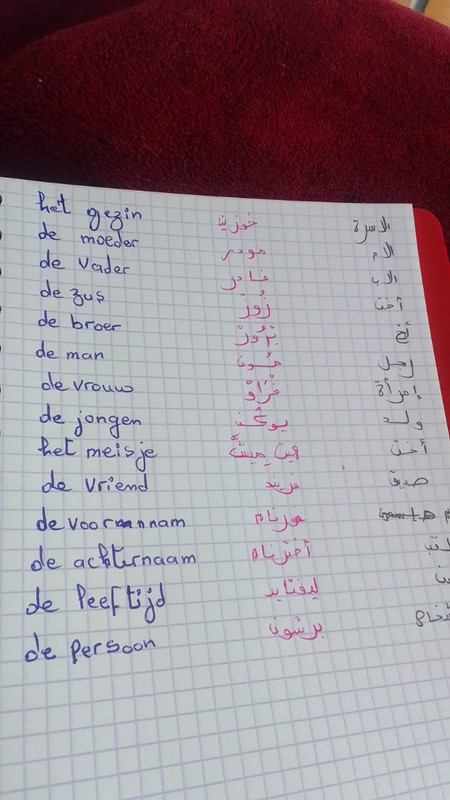 het gezin خوزين الاسرة
de moeder مودر الام
de vader فادر الاب
de zus زوز أخت
de broer بروز أخ
de man مون رجل
de vrouw فراو إمرأة
de jongen يونگن ولد
het meisje أخت
de vriend فريند صديق
de voornnam فورنام
de achternaam أخترنام
de leeftijd ليفتايد
de persoon برسون